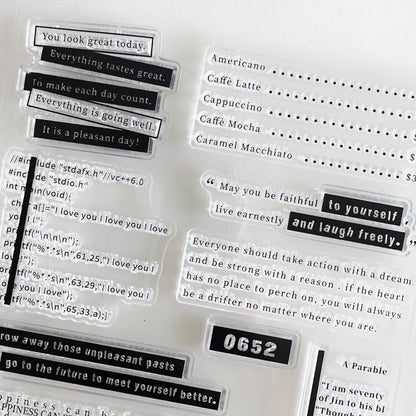 You look great today.
Everything tastes great.
To make each day count.
Everything is going well.
It is a pleasant day!
Americano
Caffè Latte
Cappuccino
Caffè Mocha
Caramel Macchiato
$3
//#include "stdafx.h"//vc++6.0
#include "stdio.h"
int main(void){
char a[]="I love you I love you I love
you I ";
printf("\n\n\n");
printf("%*.*s\n",61,25,"I love you I
love you");
printf("%*.*s\n",63,29,"I love you I
love you I love");
printf("%*.*s\n",65,33,a);
“ May you be faithful to yourself
live earnestly and laugh freely.
Everyone should take action with a dream
and be strong with a reason . if the heart
has no place to perch on, you will always
be a drifter no matter where you are.
0652
row away those unpleasant pasts
go to the future to meet yourself better.
A Parable
"I am seventy
of Jin to his bl